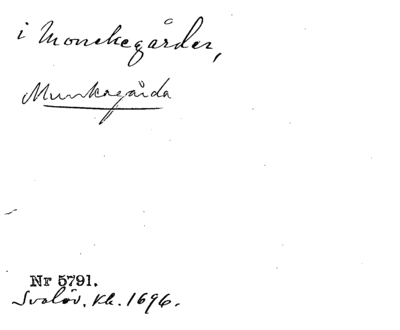 i Monckegården,
Munkagårda
Nr 5791.
Svalöv. Kb. 1696.